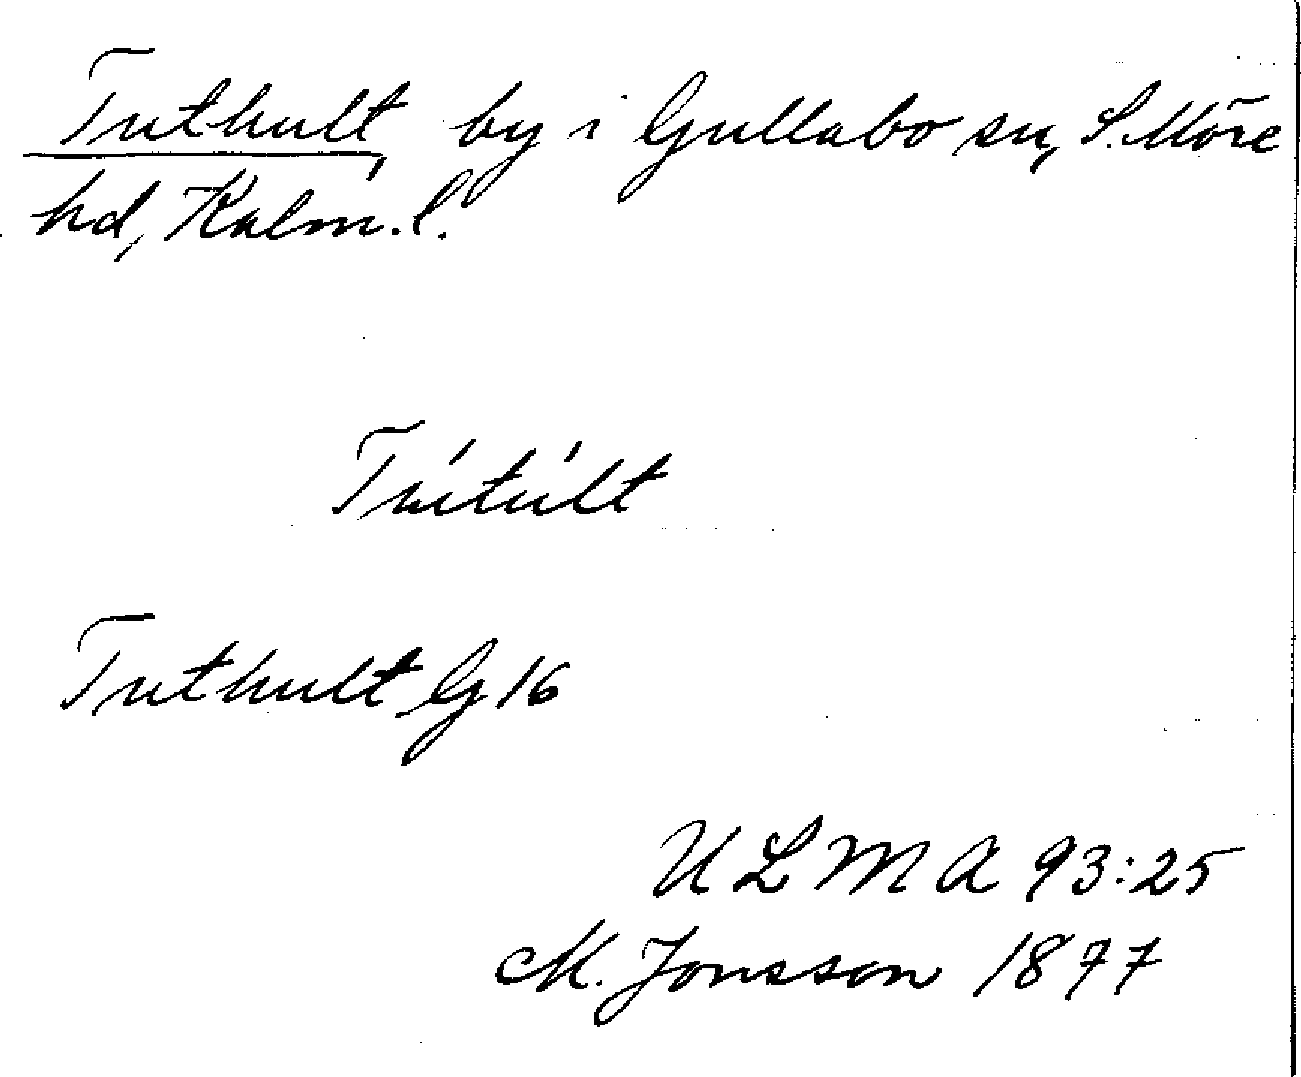 Tuthult, by i Gullabo sn, S. Möre
hd, Kalm. l.
Tútúlt
Tuthult G 16
ULMA 93:25
M. Jonsson 1877